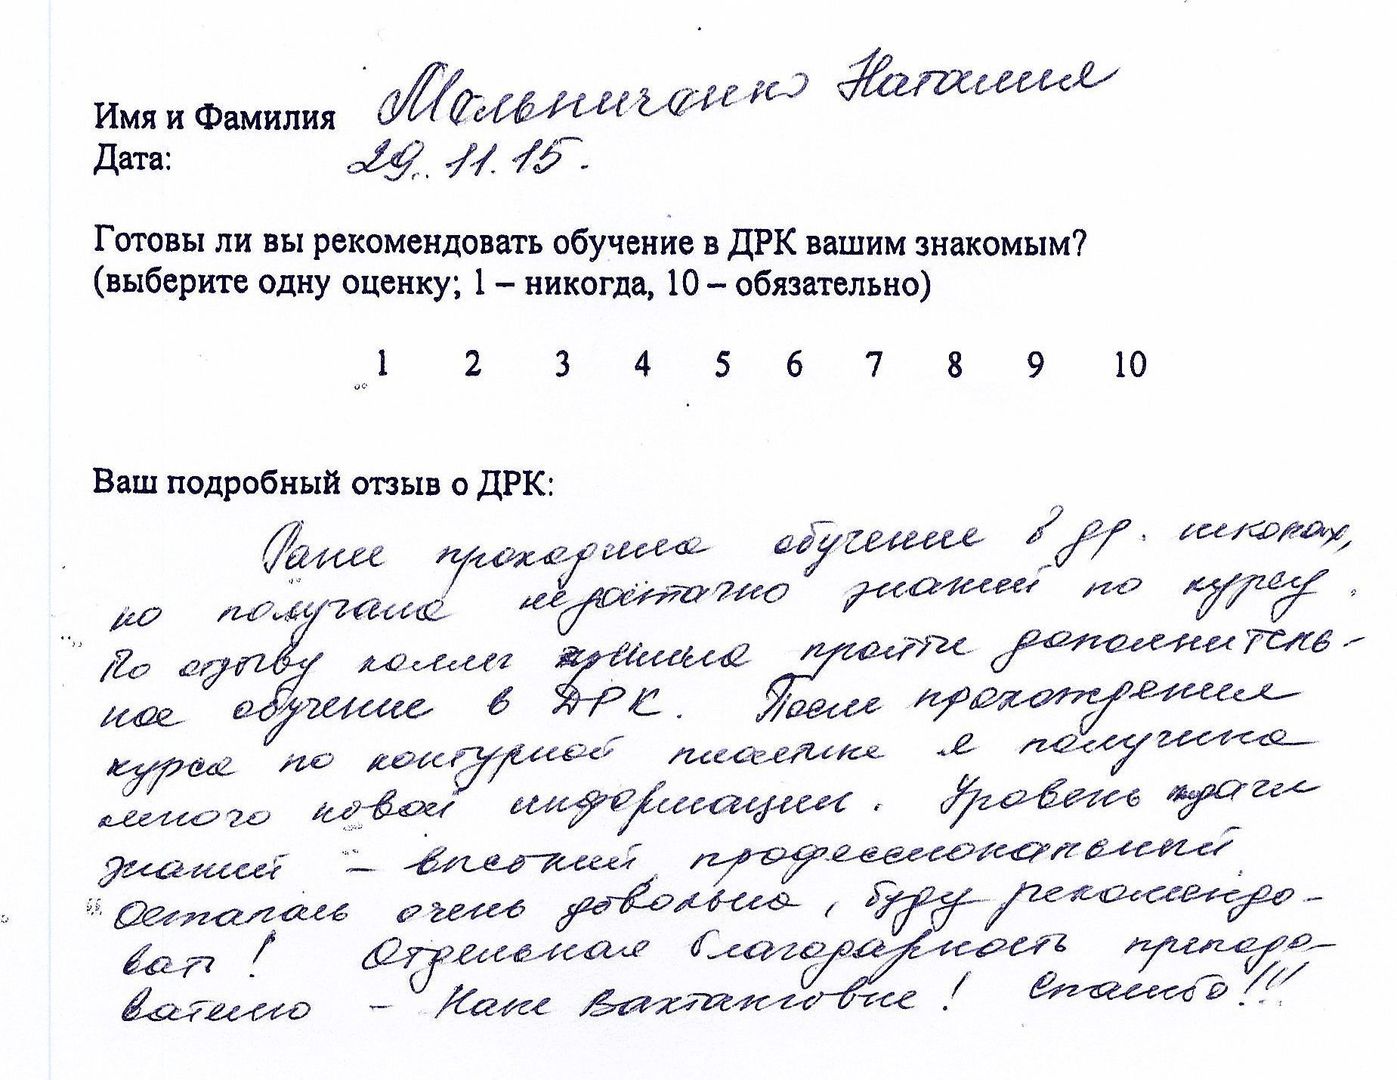 Имя и Фамилия Мельниченко Наталия
Дата: 29.11.15.
Готовы ли вы рекомендовать обучение в ДРК вашим знакомым?
(выберите одну оценку; 1 – никогда, 10 – обязательно)
1 2 3 4 5 6 7 8 9 10
Ваш подробный отзыв о ДРК:
Ранее проходила обучение в др. школах,
но получала недостаточно знаний по курсу.
По отзыву коллег решила пройти дополнитель-
ное обучение в ДРК. После прохождения
курса по контурной пластике я получила
много новой информации. Уровень подачи
знаний – высокий, профессиональный
Осталась очень довольна, буду рекомендо-
вать! Отдельная благодарность преподо-
вателю – Нане Вахтанговне! Спасибо!!!